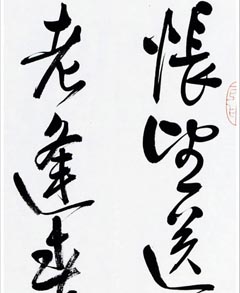 悵望送
老逢春